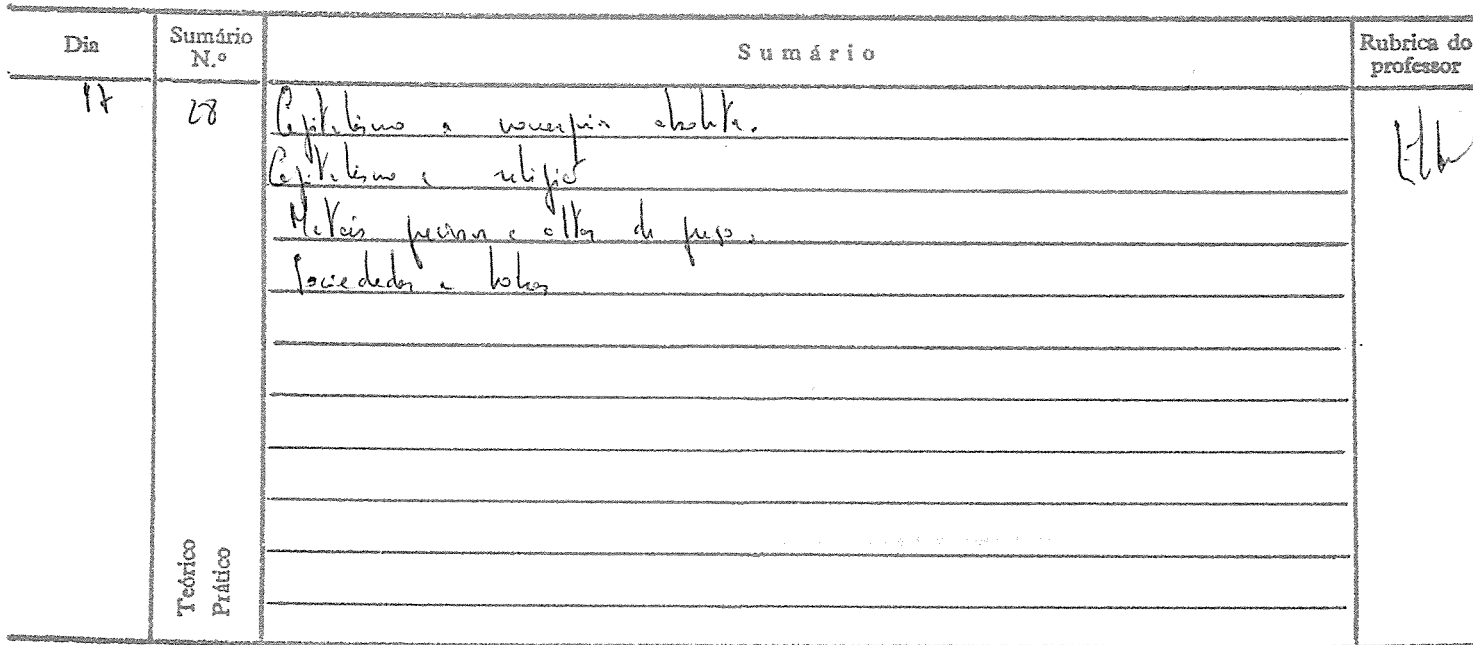 Dia
Sumário N.º
Sumário
Rubrica do professor
17
28
Capitalismo e monarquia absoluta.
Capitalismo e religião
Metais preciosos e alta de preços.
Sociedades e bolsas
Teórico
Prático